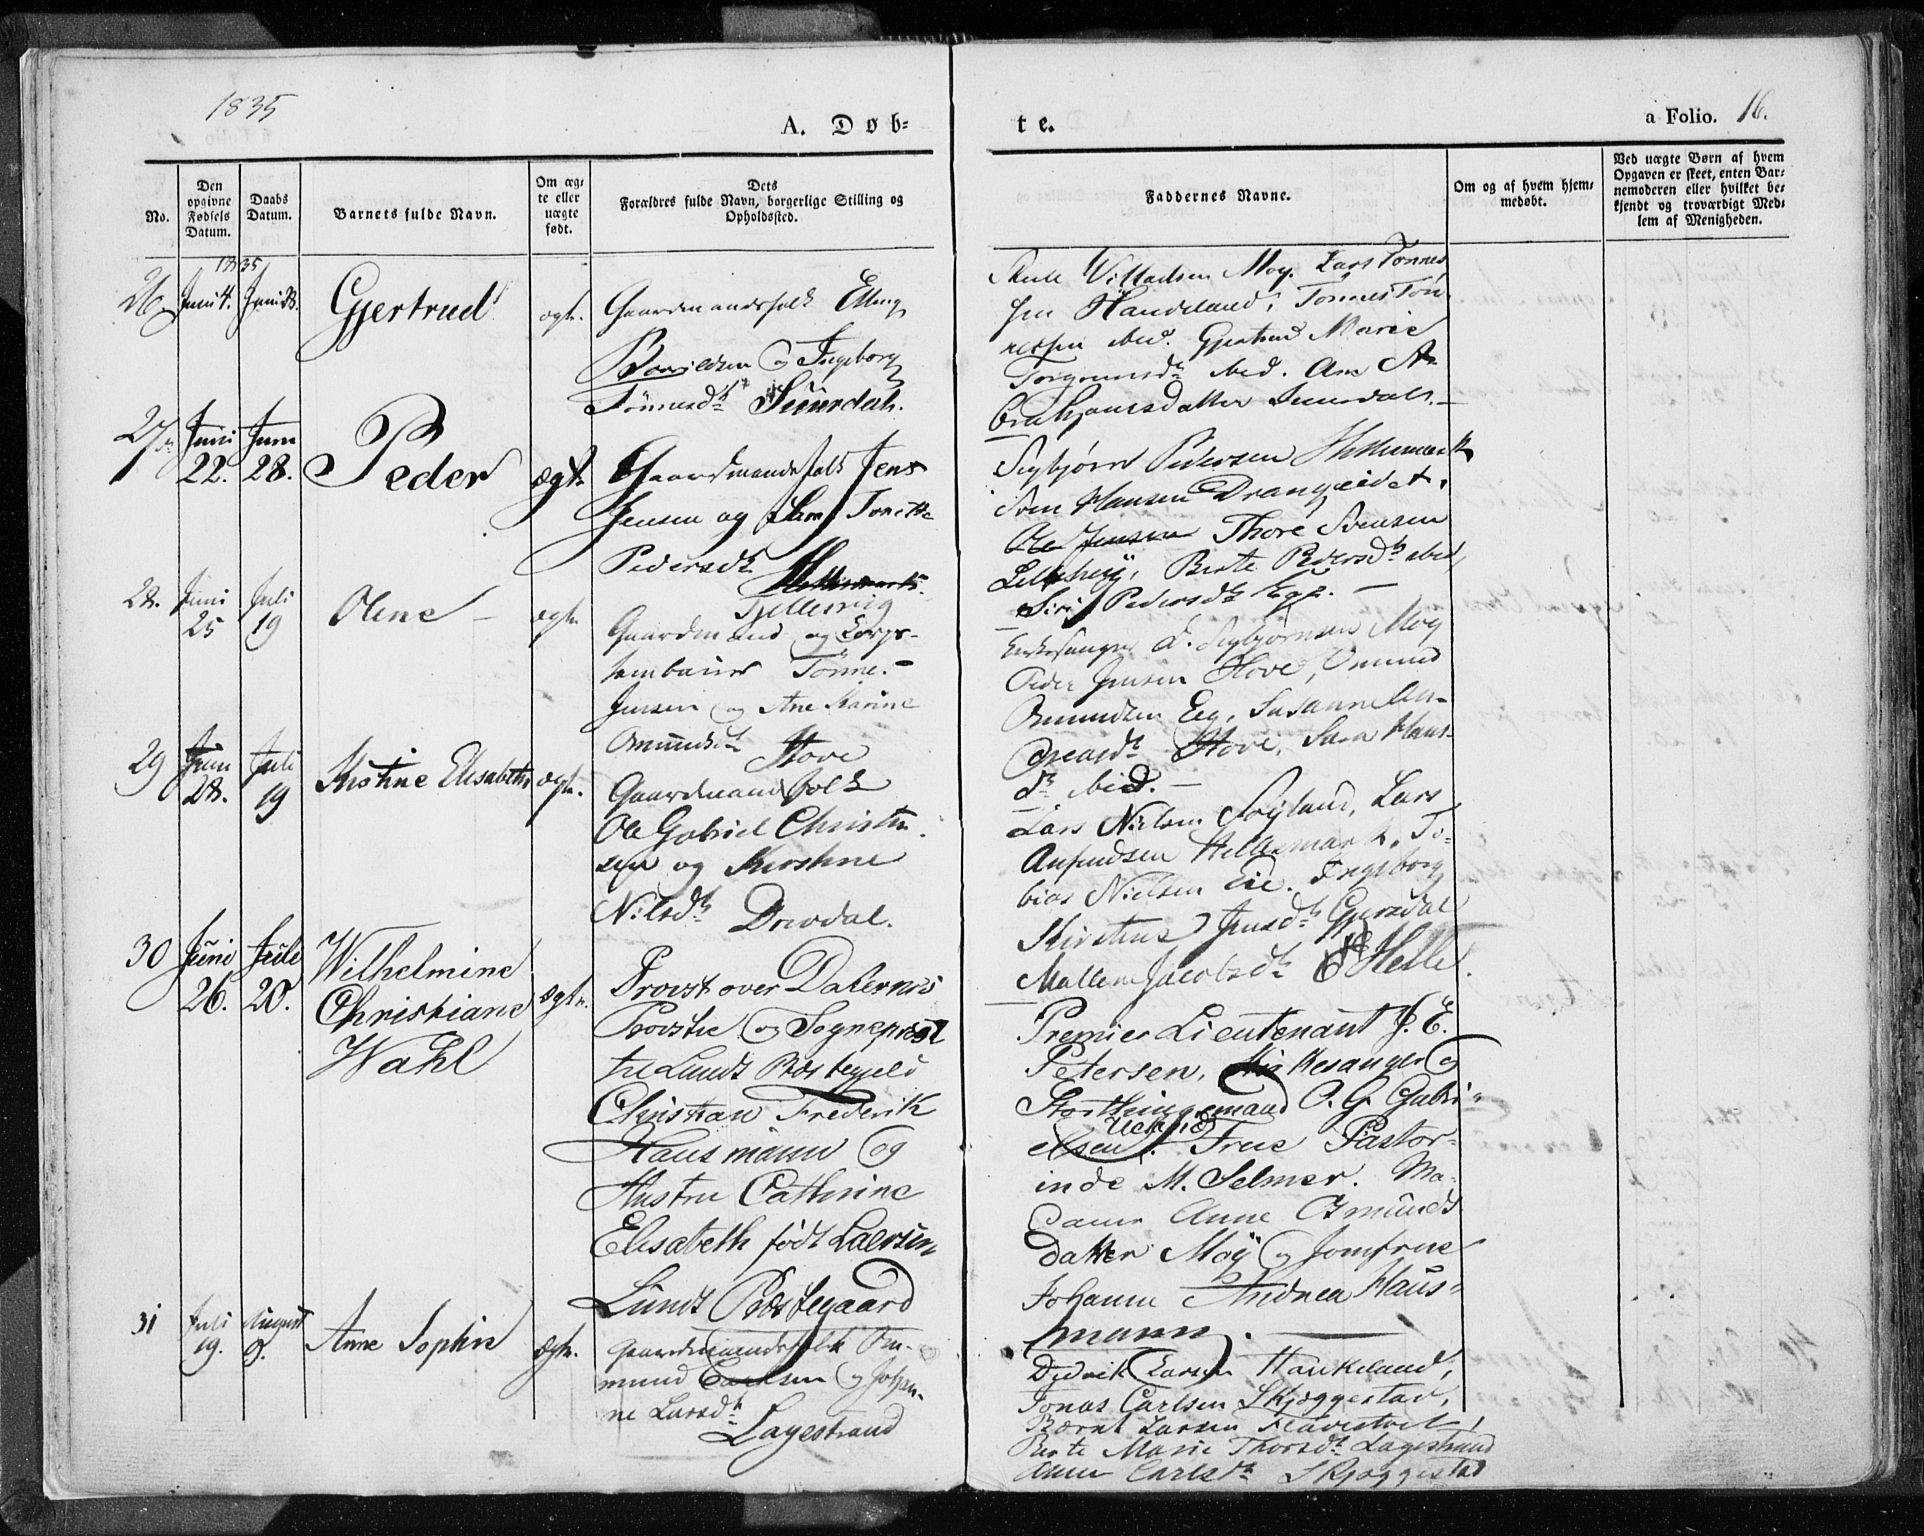 1835
A. Døb-
te.
a Folio. 16.
No.
Den
opgivne
Fødsels
Datum.
Daabs
Datum.
Barnets fulde Navn.
Om æg-
te eller
uægte
født.
Dets
Forældres fulde Navn, borgerlige Stilling og
Opholdssted.
Faddernes Navne.
Om og af hvem hjem-
medøbt.
Ved uægte Børn af hvem
Opgaven er skeet, enten Bar-
nemoderen eller hvilket be-
kjendt og troværdigt Med-
lem af Menigheden.
1835
26 Juni 4. Juni 28. Gjertrud ægte. Gaardmandsfolk Elling
og Ingeborg
Tönnesdtr Suursdal.
Moy. Lars Tönnes
sen Haukeland, Tonnes Tön
nessen ibid. Gjertrud Marie
ibid. Ane A-
brahamsdatter Suursdal.
27 Juni 22. Juni 28. Peder ægte. Gaardmandsfolk Jens
Jensen og Tonette
Pedersdtr
Tjellesvig
Sigbjørn Pedersen Hellemark
Sven Hansen Drangeidet,
Ole Jensen Thore Svensen
Bente Pedersdtr ibid
Siri Pedersdtr Ege.
28. Juni 25 Juli 19 Olene ægte Gaardmand og Corps-
tambour Tönne-
Jensen og Ane Karine
Omundsdtr Hove
Kirkesanger O. Sigbjørnsen Moy
Peder Jensen Hove, Omund
Omundsen Eeg, Susanne An-
dreasdtr Hove, Sara Hans-
dtr ibid.
29 Juni 28. Juli 19 Kistine Elisabeth ægte. Gaardmandsfolk
Ole Gabriel Christen-
sen og Kirstine
Nilsdtr Drivdal.
Lars Nielsen Søyland, Lars
Hellemark, To-
bias Nielsen Eie. Ingeborg
Kirstine Jensdtr Gyersdal
Mallene Jacobsdtr Helle.
30 Juni 26. Juli 20. Wilhelmine
Christiane
Wahl
ægte. Provst over Dalernes
Provstie og Sognepræst
til Lunds Præstegjeld
Christian Frederik
Hausmann og
Hustru Cathrine
Elisabeth født Laersen
Lunds Præstegaard
Premier Lieutenant J. E.
Petersen, Kirkesanger og
Storthingsmand O. G. Gabri-
elsen Ueland. Frue Pastor-
inde M. Selmer. Ma-
dame Anne Osmunds
datter Moÿ og Jomfrue
Johanne Andrea Haus-
mann.
31 Juli 19. August 9. Anne Sophie ægte. Gaardmandsfolk Om-
mund Carlsen og Johan-
ne Larsdtr
Lagestrand
Didrik Larsen Haukeland,
Jonas Carlsen Skjæggestad,
Bærnt Larsen
Bente Marie Thorsdtr Lagestrand
Anne Carlsdtr Skjæggestad